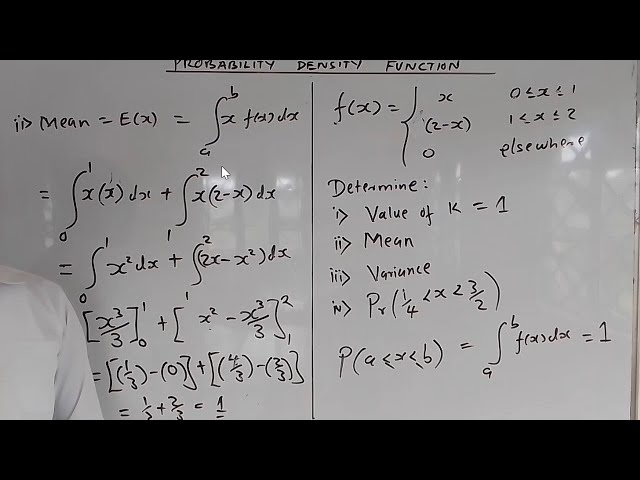 PROBABILITY DENSITY FUNCTION
ii) Mean = E(x) = ∫_a^b x f(x) dx
= ∫_0^1 x(x) dx + ∫_1^2 x(2-x) dx
= ∫_0^1 x² dx + ∫_1^2 (2x - x²) dx
[x³/3]_0^1 + [x² - x³/3]_1^2
= [(1/3) - (0)] + [(4/3) - (2/3)]
= 1/3 + 2/3 = 1
f(x) = { x 0 ≤ x ≤ 1
(2-x) 1 < x ≤ 2
0 elsewhere
Determine:
i) Value of K = 1
ii) Mean
iii) Variance
iv) Pr(1/4 < x < 3/2)
P(a ≤ x ≤ b) = ∫_a^b f(x) dx = 1